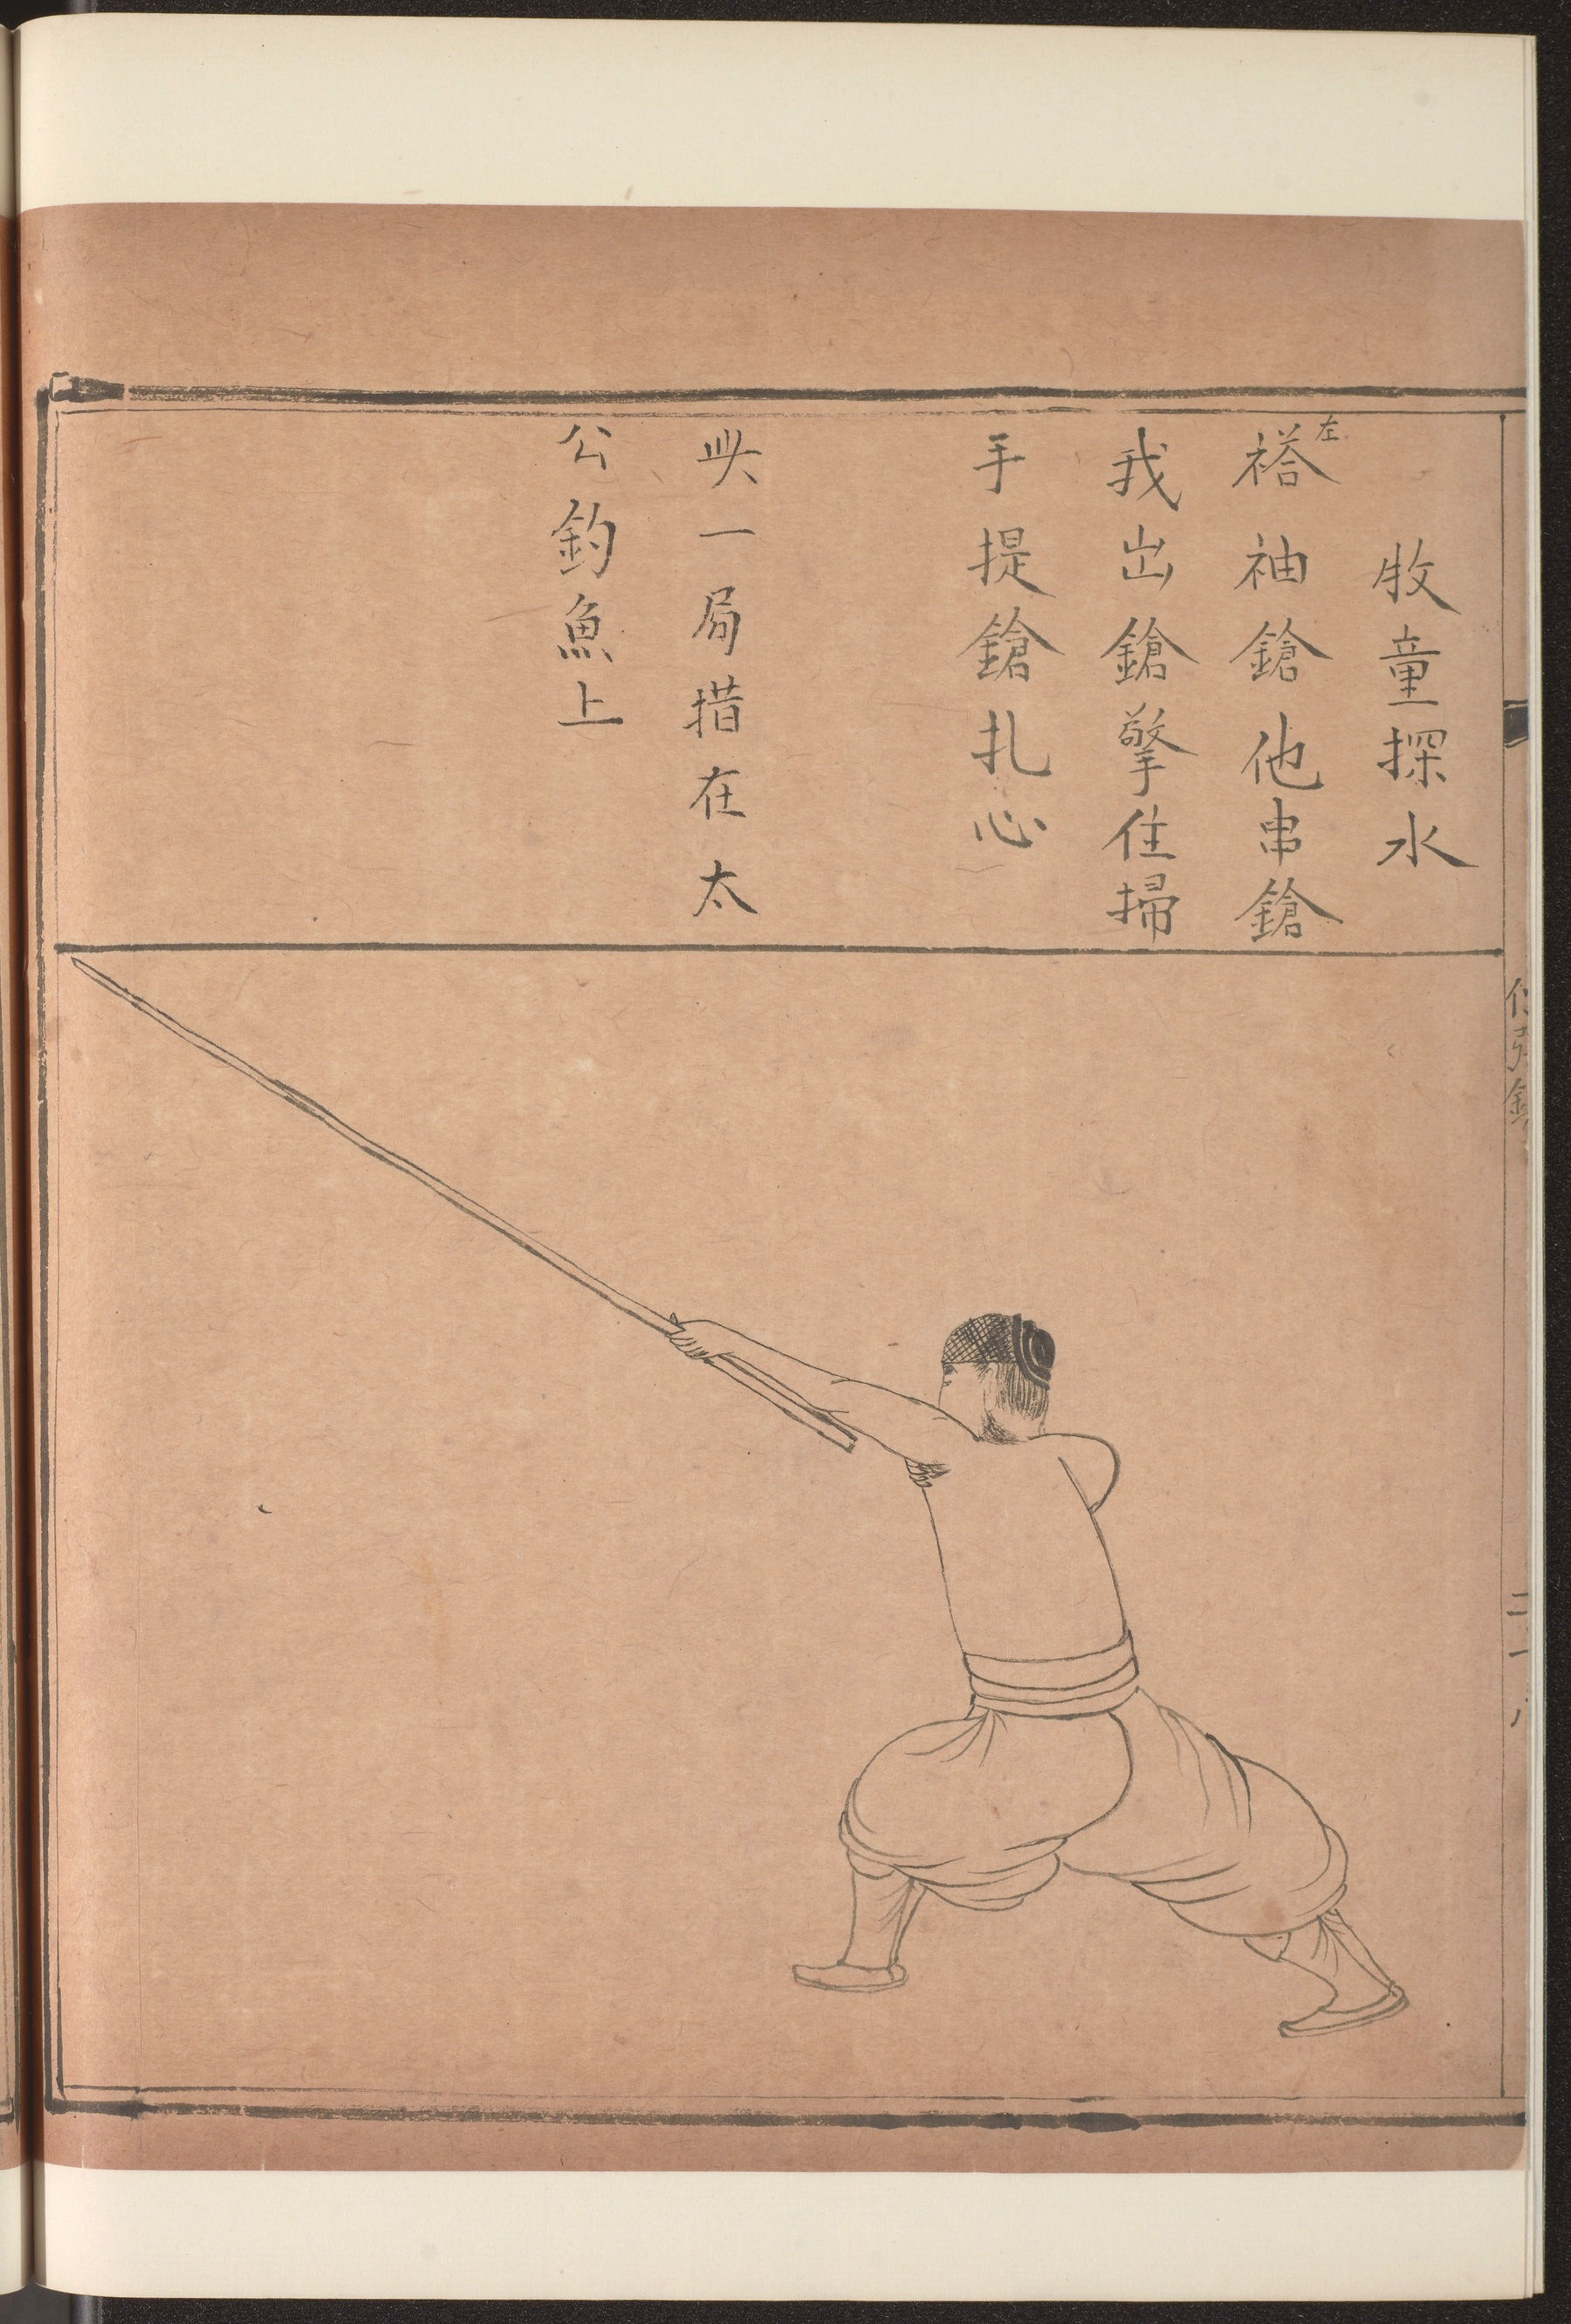 牧童探水
左
褡袖鎗他串鎗
我出鎗擎住掃
手提鎗扎心
此一局措在太
公釣魚上